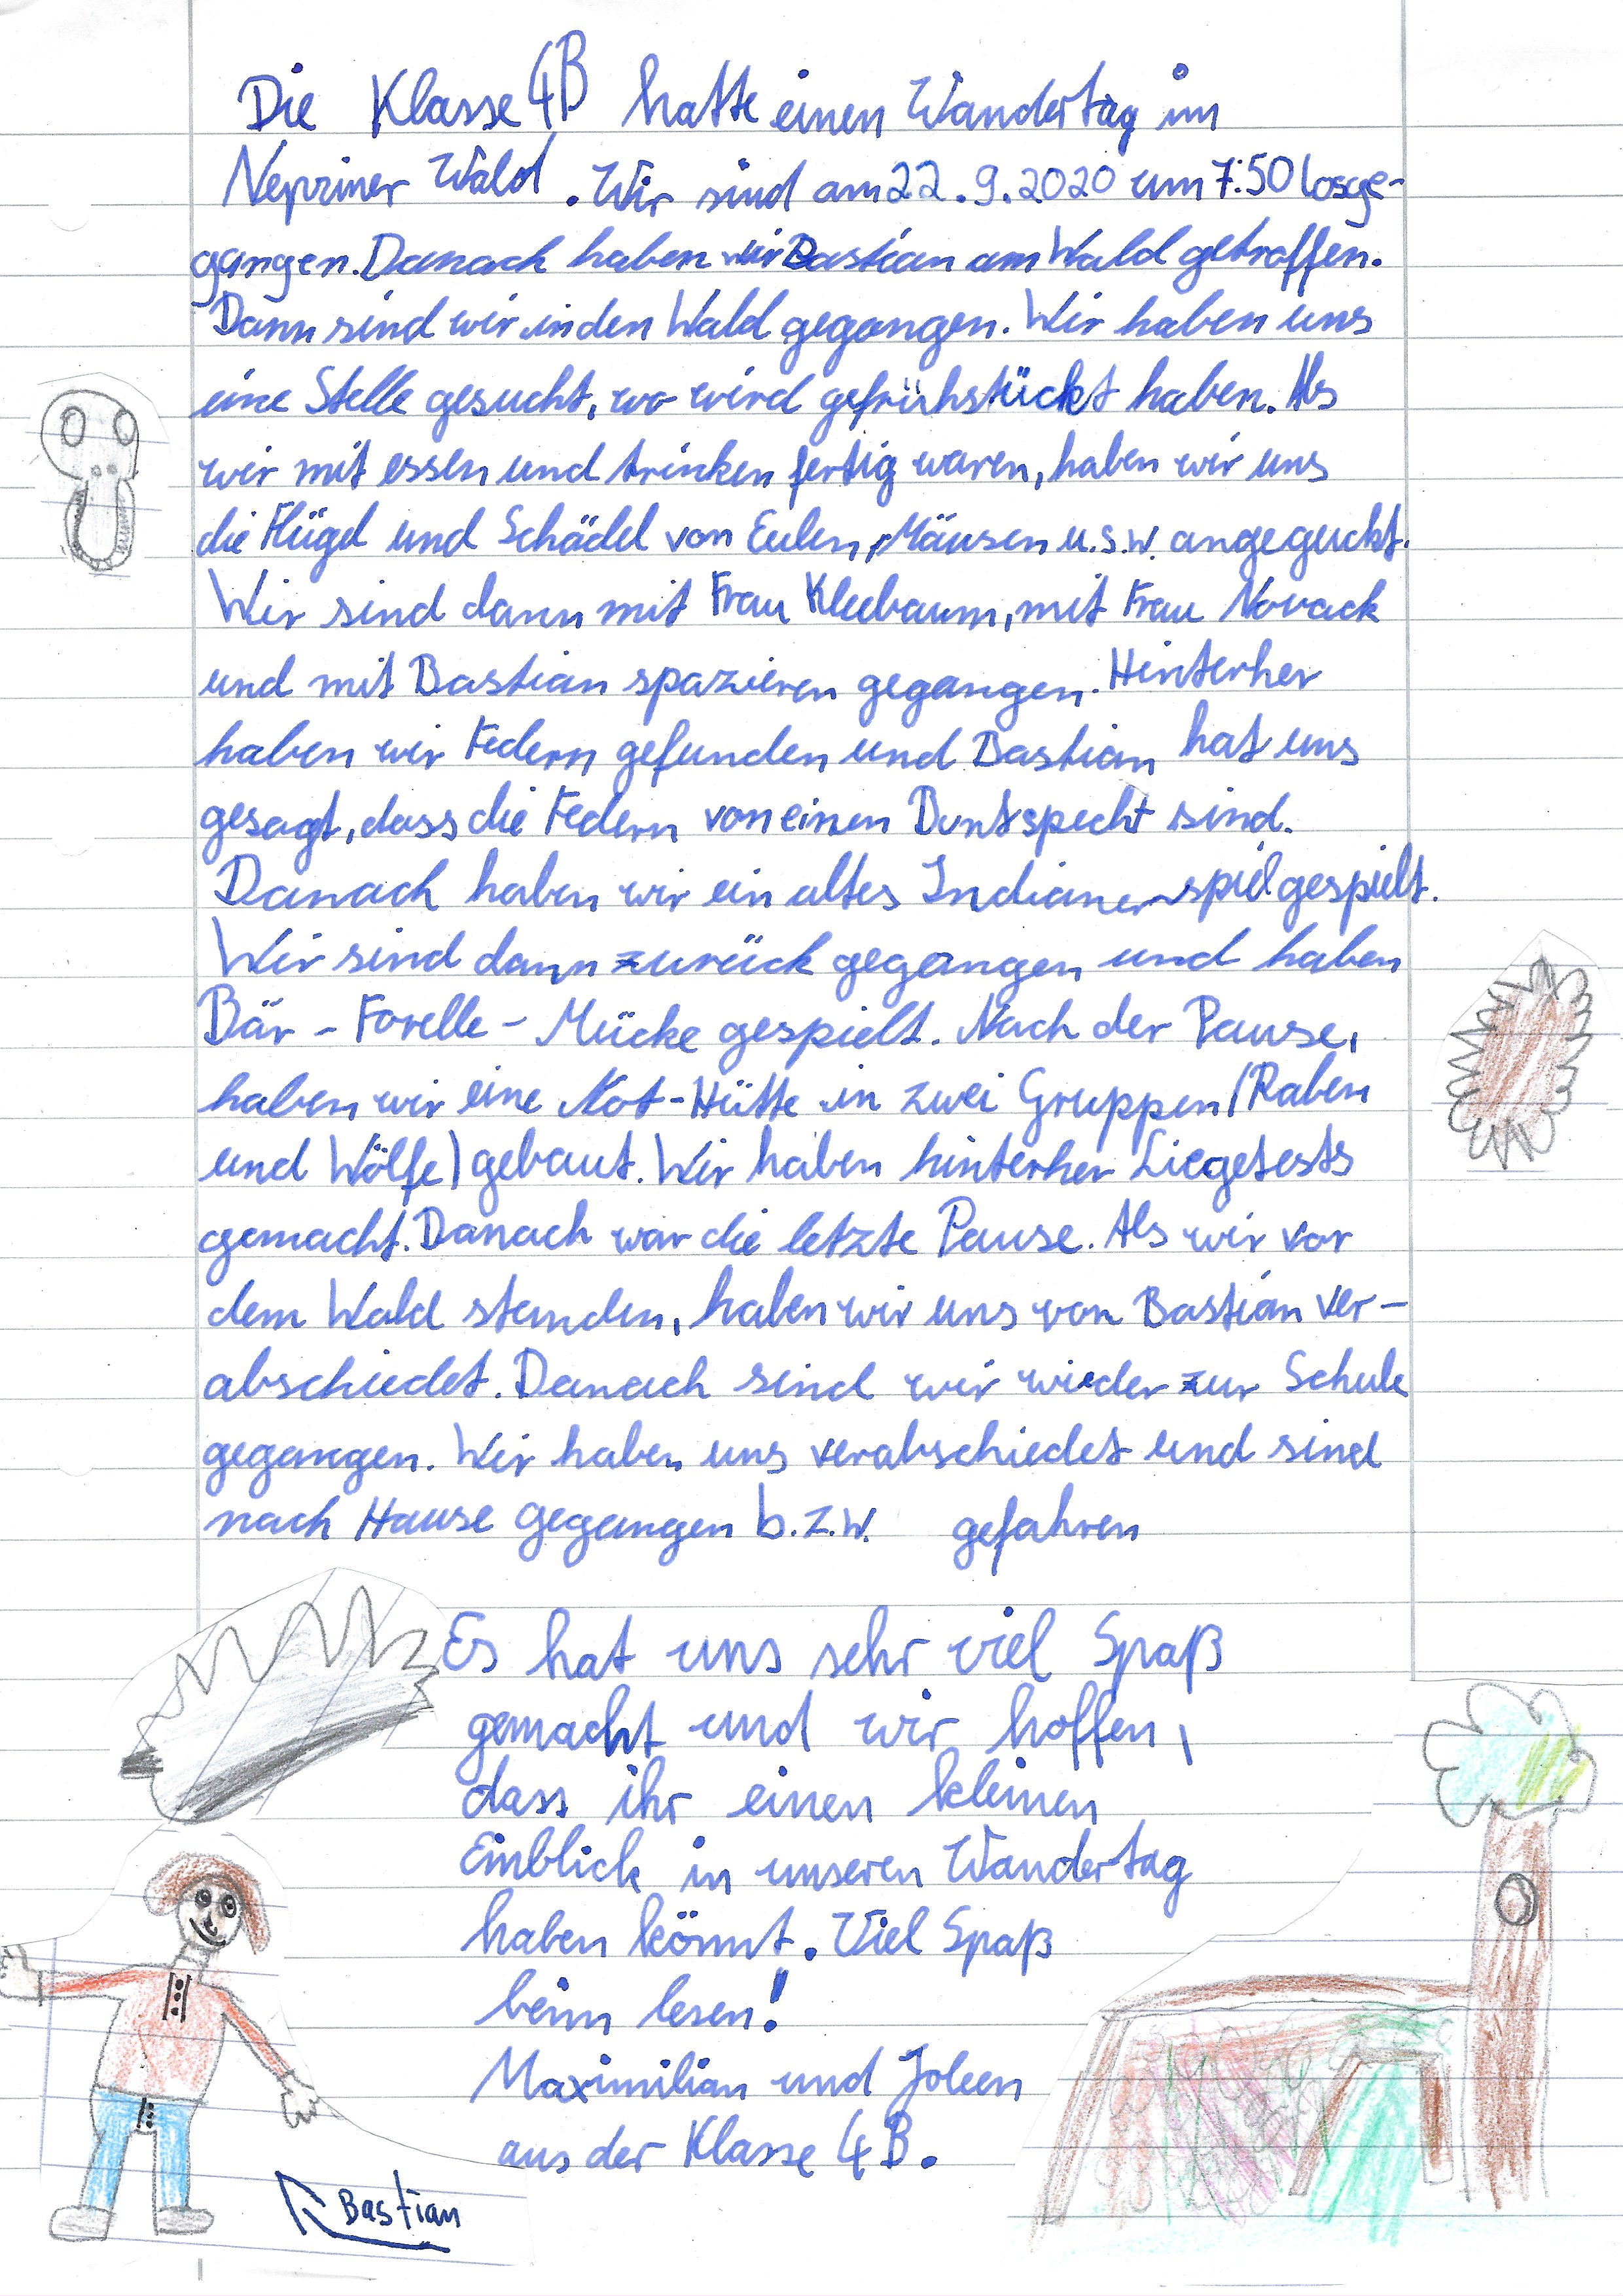 Die Klasse 4B hatte einen Wandertag im
Nepziner Wald. Wir sind am 22.9.2020 um 7:50 losge-
gangen. Danach haben wir Bastian am Wald getroffen.
Dann sind wir in den Wald gegangen. Wir haben uns
eine Stelle gesucht, wo wird gefrühstückt haben. Als
wir mit essen und trinken fertig waren, haben wir uns
die Flügel und Schädel von Eulen, Mäusen u.s.w. angeguckt.
Wir sind dann mit Frau Kleebaum, mit Frau Novack
und mit Bastian spazieren gegangen. Hinterher
haben wir Federn gefunden und Bastian hat uns
gesagt, dass die Federn von einen Buntspecht sind.
Danach haben wir ein altes Indianerspiel gespielt.
Wir sind dann zurück gegangen und haben
Bär - Forelle - Mücke gespielt. Nach der Pause,
haben wir eine Not-Hütte in zwei Gruppen (Raben
und Wölfe) gebaut. Wir haben hinterher Liegetests
gemacht. Danach war die letzte Pause. Als wir vor
dem Wald standen, haben wir uns von Bastian ver-
abschiedet. Danach sind wir wieder zur Schule
gegangen. Wir haben uns verabschiedet und sind
nach Hause gegangen b.z.w. gefahren
Es hat uns sehr viel Spaß
gemacht und wir hoffen,
dass ihr einen kleinen
Einblick in unseren Wandertag
haben könnt. Viel Spaß
beim lesen!
Maximilian und Joleen
aus der Klasse 4B.
Bastian